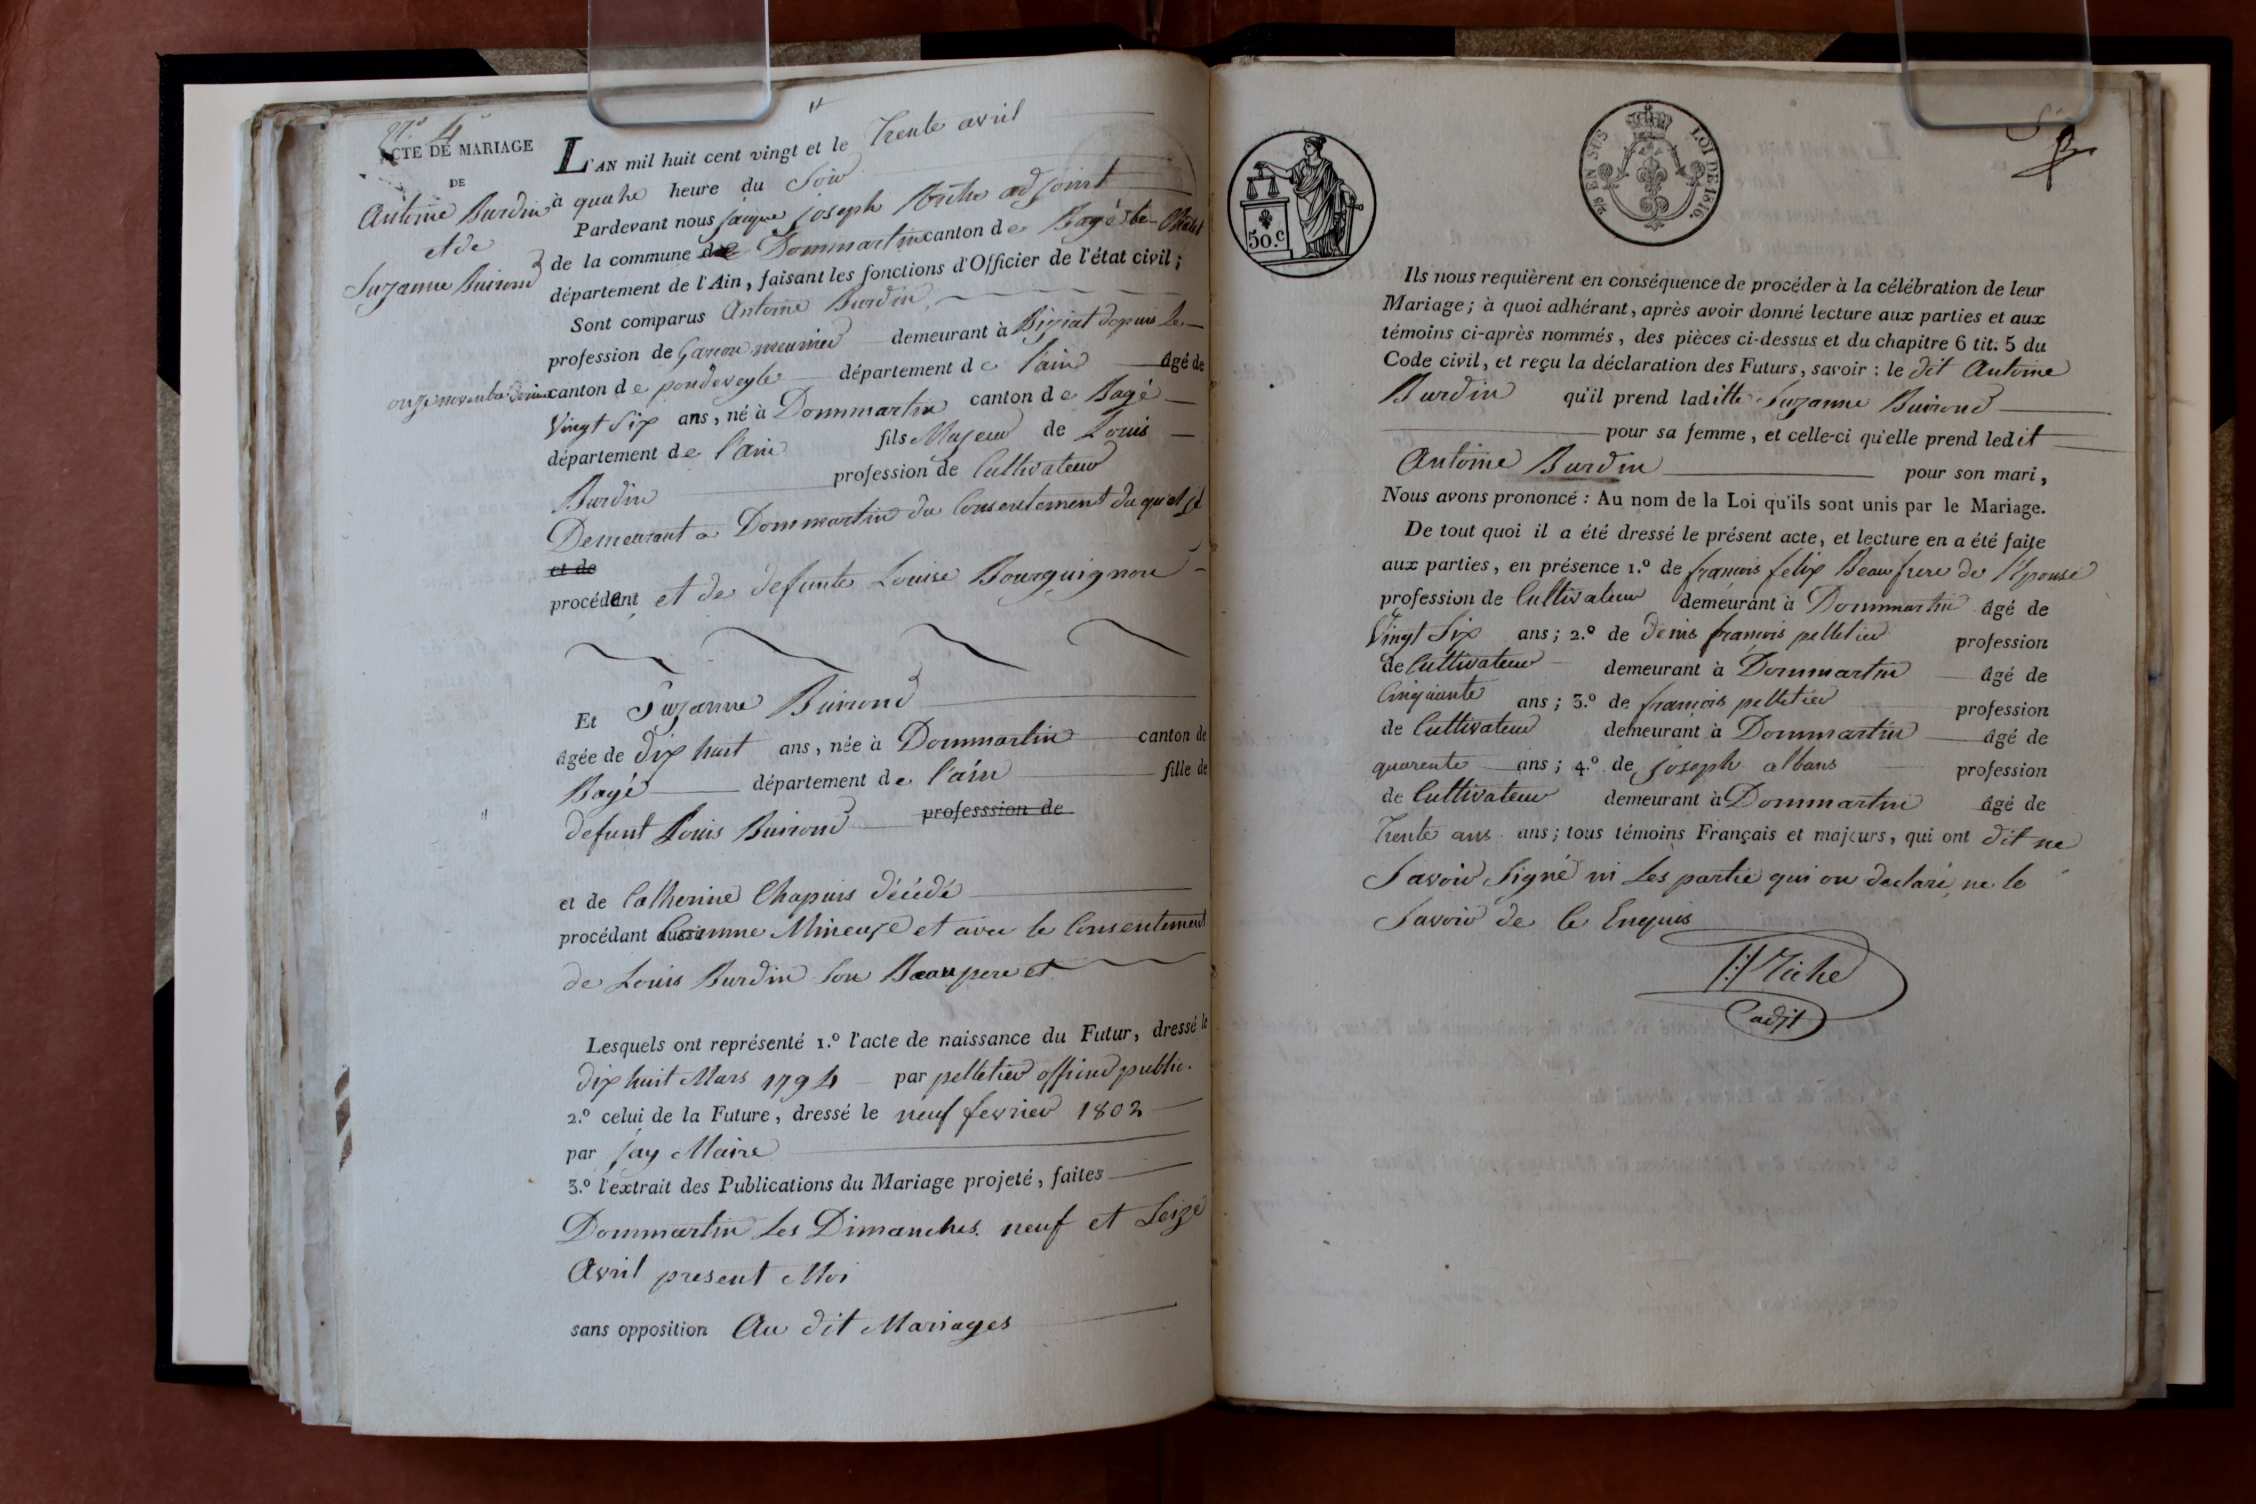 N.º 4
ACTE DE MARIAGE
DE
Antoine Burdin
et de
Suzanne Buirond
L'AN mil huit cent vingt et le Trente avril
à quatre heure du Soir
Pardevant nous jacque joseph adjoint
de la commune de Dommartin canton de Bagé
département de l'Ain, faisant les fonctions d'Officier de l'état civil;
Sont comparus Antoine Burdin
profession de Garcon meunier demeurant à Biziat depuis Le
onze novembre dernier canton de pondeveyle département de l'ain âgé de
Vingt Six ans, né à Dommartin canton de Bagé
département de l'ain fils Majeur de Louis
Burdin profession de Cultivateur
Demeurant a Dommartin du Consentement du quel il
et de
procédant et de defunte Louise Bourguignon
Et Suzanne Buirond
âgée de dix huit ans, née à Dommartin canton de
Bagé département de l'ain fille de
defunt Louis Buirond professsion de
et de Catherine Chapuis décédé
procédant Comme Mineuze et avec le Consentement
de Louis Burdin Son Beau pere et
Lesquels ont représenté 1.º l'acte de naissance du Futur, dressé le
dix huit Mars 1794 par pelletier officier public.
2.º celui de la Future, dressé le neuf fevrier 1802
par jay Maire
3.º l'extrait des Publications du Mariage projeté, faites
Dommartin Les Dimanches neuf et Seize
Avril present Moi
sans opposition Au dit Mariages
50.C
EN SUS
LOI DE 1816.
Ils nous requièrent en conséquence de procéder à la célébration de leur
Mariage; à quoi adhérant, après avoir donné lecture aux parties et aux
témoins ci-après nommés, des pièces ci-dessus et du chapitre 6 tit. 5 du
Code civil, et reçu la déclaration des Futurs, savoir : le dit Antoine
Burdin qu'il prend laditte Suzanne Buirond
pour sa femme, et celle-ci qu'elle prend ledit
Antoine Burdin pour son mari,
Nous avons prononcé : Au nom de la Loi qu'ils sont unis par le Mariage.
De tout quoi il a été dressé le présent acte, et lecture en a été faite
aux parties, en présence 1.º de françois felix Beau frere de l'Epouse
profession de Cultivateur demeurant à Dommartin âgé de
Vingt Six ans; 2.º de denis françois pelletier profession
de Cultivateur demeurant à Dommartin âgé de
Cinquante ans; 3.º de françois pelletier profession
de Cultivateur demeurant à Dommartin âgé de
quarente ans; 4.º de joseph albans profession
de Cultivateur demeurant à Dommartin âgé de
Trente ans ans; tous témoins Français et majeurs, qui ont dit ne
Savoir Signé ni Les partie qui on declaré ne le
Savoir de Ce Enquis
adjt